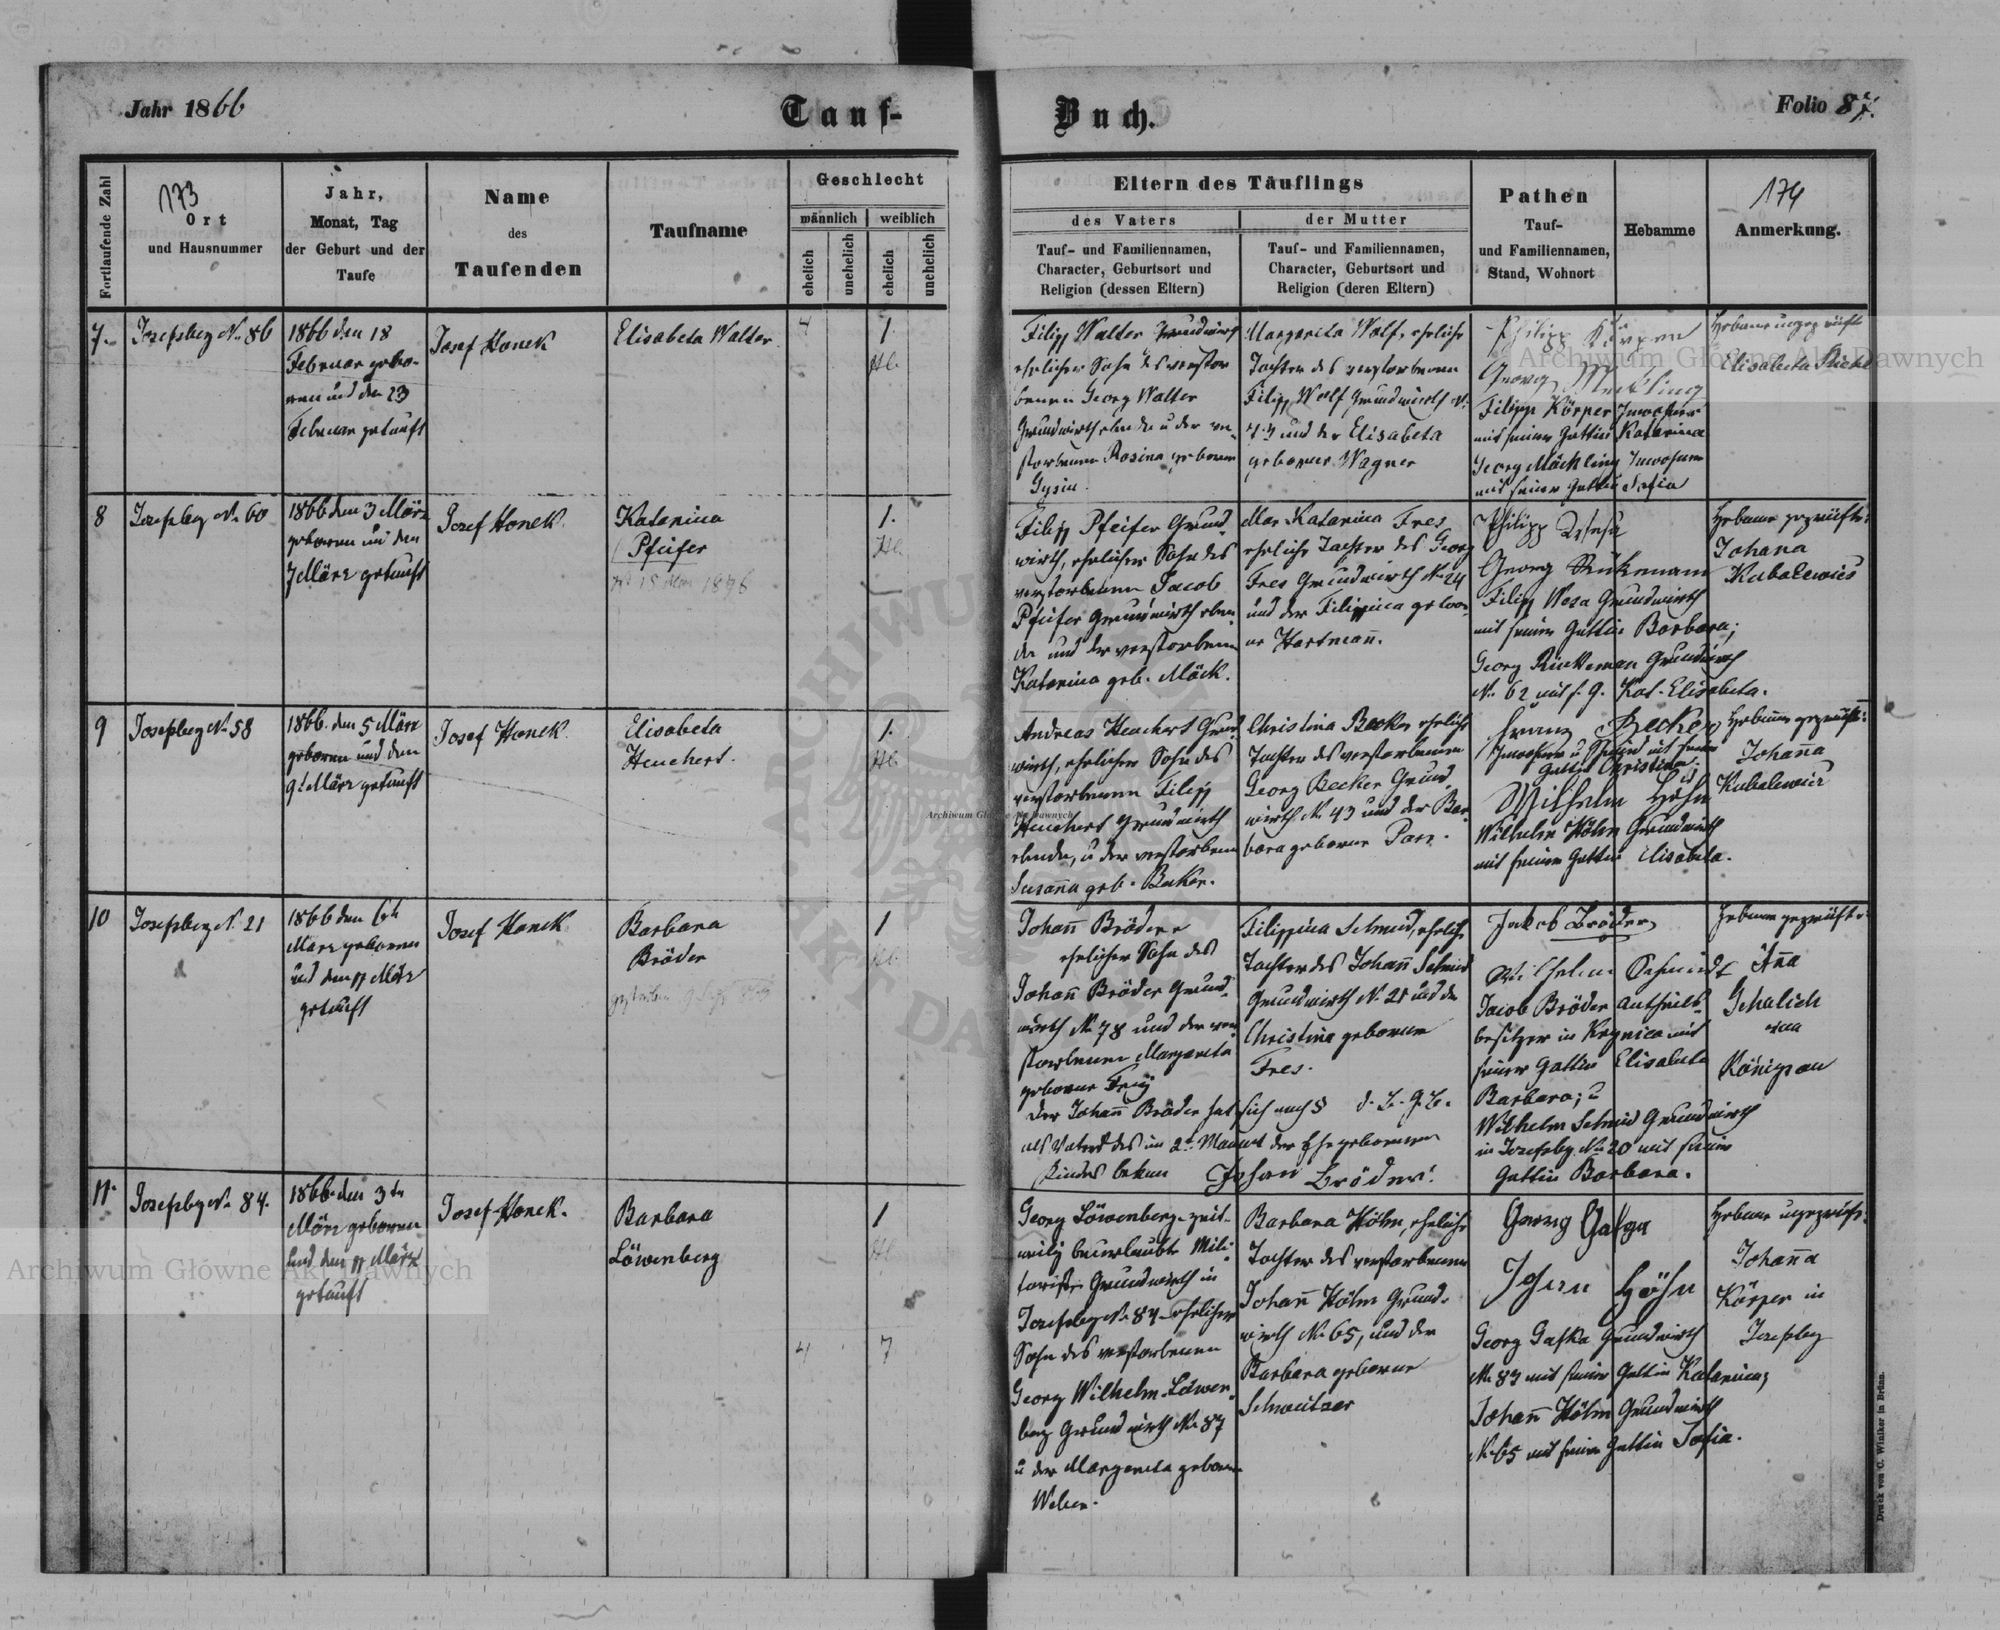 Jahr 1866
Tauf-
Buch.
Folio 87.
Fortlaufende Zahl
173
Ort
und Hausnummer
Jahr,
Monat, Tag
der Geburt und der
Taufe
Name
des
Taufenden
Taufname
Geschlecht
männlich
weiblich
ehelich
unehelich
ehelich
unehelich
Eltern des Täuflings
des Vaters
Tauf- und Familiennamen,
Character, Geburtsort und
Religion (dessen Eltern)
der Mutter
Tauf- und Familiennamen,
Character, Geburtsort und
Religion (deren Eltern)
Pathen
Tauf-
und Familiennamen,
Stand, Wohnort
Hebamme
174
Anmerkung.
7.
Josefsberg N. 86
1866 den 18
Februar gebo-
ren und den 23
Februar getauft
Josef Honek
Elisabeta Walter
4
1.
Filipp Walter Grundwirth
ehelicher Sohn des verstor
benen Georg Walter
Grundwirth ebenda u der ver-
storbenen Rosina geborene
Margareta Wolf, eheliche
Tochter des verstorbenen
Filipp Wolf Grundwirth N.
73 und der Elisabeta
geborne Wagner
Philipp Körper
Georg Meckling
Filipp Körper Inwohner
mit seiner Gattin Katarina
Georg Mäckling Inwohner
mit seiner Gattin Sofia
Hebame ungeprüft
Elisabeta
8
Josefsberg N. 60
1866 den 3 März
geboren und den
7 März getauft
Josef Honek.
Katarina
Pfeifer
1.
Filipp Pfeifer Grund-
wirth, ehelicher Sohn des
verstorbenen Jacob
Pfeifer Grundwirth eben-
da und der verstorbenen
Katarina geb. Mäck.
Mar Katarina Fres
eheliche Tochter des Georg
Fres Grundwirth N. 24
und der Filippina gebor-
ne Hartmann.
Philipp
Georg Rükemann
Filipp Wesa Grundwirth
mit seiner Gattin Barbara;
Georg Rückeman Grundwirth
N. 62 mit s. G. Kat. Elisabeta.
Hebame geprüfte:
Johana
Kubalewics
9
Josefsberg N. 58
1866. den 5 März
geboren und den
9t März getauft
Josef Honek.
Elisabeta
Heuchert.
1.
Andreas Heuchert Grund
wirth, ehelicher Sohn des
verstorbenen Filipp
Heuchert Grundwirth
ebenda, u der verstorbenen
Susanna geb. Becker.
Christina Becker eheliche
Tochter des verstorbenen
Georg Becker Grund
wirth N. 43 und der Bar-
bara geborne
Franz Becker
Gattin Christina.
Wilhelm Höhn
Wilhelm Höhn Grundwirth
mit seiner Gattin Elisabeta.
Hebame geprüft:
Johanna
Kubalewicz
10
Josefsberg N. 21
1866 den 6th
März geboren
und den 11 März
getauft
Josef Honek
Barbara
Bröder
1
Johann Bröder
ehelicher Sohn des
Johann Bröder Grund-
wirth N. 78 und der ver-
storbenen Margareta
geborne Frey
Filippina Schmid, eheliche
Tochter des Johann Schmid
Grundwirth N. 21 und der
Christina geborne
Fres.
Der Johann Bröder hat sich nach § d. b. G. b.
als Vater des im 2ten Monat der Ehe gebornen
Kindes bekan Johan Bröder.
Jakob Bröder
Wilhelm Schmidt
Jacob Bröder Antheils-
besitzer in Krynica mit
seiner Gattin Elisabeta
Barbara; u
Wilhelm Schmid Grundwirth
in Josefsbg. N. 20 mit seiner
Gattin Barbara.
Hebame geprüft:
Anna
Schalich
Königsau
11.
Josefsberg N. 84.
1866 den 3ten
März geboren
und den 11 März
getauft
Josef Honek.
Barbara
Löwenberg
1
4
7
Georg Löwenberg zeit-
weilig beurlaubte Mili-
tarist Grundwirth in
Josefsberg N. 84 ehelicher
Sohn des verstorbenen
Georg Wilhelm Löwen-
berg Grundwirth N. 87
u der Margareta geborne
Weber.
Barbara Höhn, eheliche
Tochter des verstorbenen
Johann Höhn Grund-
wirth N. 65, und der
Barbara geborne
Schweitzer
Georg Gafga
Johann Höhn
Georg Gafka Grundwirth
N. 83 mit seiner Gattin Katarina;
Johann Höhn Grundwirth
N. 65 mit seiner Gattin Sofia.
Hebame ungeprüft:
Johanna
Körper in
Josefsbg
Druck von C. Winiker in Brünn.
Archiwum Główne Akt Dawnych
Archiwum Główne Akt Dawnych
Archiwum Główne Akt Dawnych